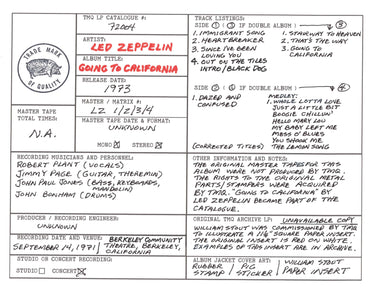 TMQ LP CATALOGUE #:
72004
TRADE MARK
OF QUALITY
ARTIST:
LED ZEPPELIN
ALBUM TITLE:
GOING TO CALIFORNIA
RELEASE DATE:
1973
MASTER / MATRIX #:
LZ 1/2/3/4
MASTER TAPE
TOTAL TIMES:
N.A.
MASTER TAPE DATE & FORMAT:
UNKNOWN
MONO STEREO
RECORDING MUSICIANS AND PERSONNEL:
ROBERT PLANT (VOCALS)
JIMMY PAGE (GUITAR, THEREMIN)
JOHN PAUL JONES (BASS, KEYBOARDS,
MANDOLIN)
JOHN BONHAM (DRUMS)
PRODUCER / RECORDING ENGINEER:
UNKNOWN
RECORDING DATE AND VENUE:
SEPTEMBER 14, 1971 BERKELEY COMMUNITY
THEATRE, BERKELEY,
CALIFORNIA
STUDIO OR CONCERT RECORDING:
STUDIO CONCERT
TRACK LISTINGS:
SIDE 1 (3 IF DOUBLE ALBUM)
1. IMMIGRANT SONG
2. HEARTBREAKER
3. SINCE I'VE BEEN
LOVING YOU
4. OUT ON THE TILES
INTRO/BLACK DOG
1. STAIRWAY TO HEAVEN
2. THAT'S THE WAY
3. GOING TO
CALIFORNIA
SIDE 2 (4 IF DOUBLE ALBUM)
1. DAZED AND
CONFUSED
MEDLEY:
1. WHOLE LOTTA LOVE
JUST A LITTLE BIT
BOOGIE CHILLUN'
HELLO MARY LOU
MY BABY LEFT ME
MESS O' BLUES
YOU SHOOK ME
(CORRECTED TITLES) THE LEMON SONG
OTHER INFORMATION AND NOTES:
THE ORIGINAL MASTER TAPES FOR THIS
ALBUM WERE NOT PRODUCED BY TMQ.
THE RIGHTS TO THE ORIGINAL METAL
PARTS/STAMPERS WERE ACQUIRED
BY TMQ. "GOING TO CALIFORNIA" BY
LED ZEPPELIN BECAME PART OF THE
CATALOGUE.
ORIGINAL TMQ ARCHIVE LP: UNAVAILABLE COPY
WILLIAM STOUT WAS COMMISSIONED BY TMQ
TO ILLUSTRATE A SQUARE PAPER INSERT.
THE ORIGINAL INSERT IS RED ON WHITE.
EXAMPLES OF THIS INSERT ARE IN ARCHIVE.
ALBUM JACKET COVER ART:
RUBBER STAMP / PIG STICKER / WILLIAM STOUT
PAPER INSERT